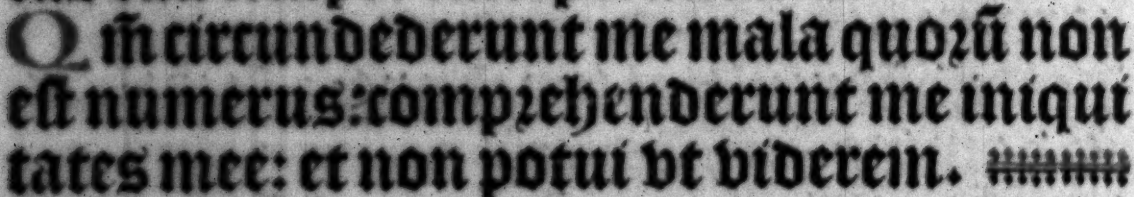 Qm̄ circundederunt me mala quoꝛū non
eſt numerus: compꝛehenderunt me iniqui
tates mee: et non potui vt viderem.